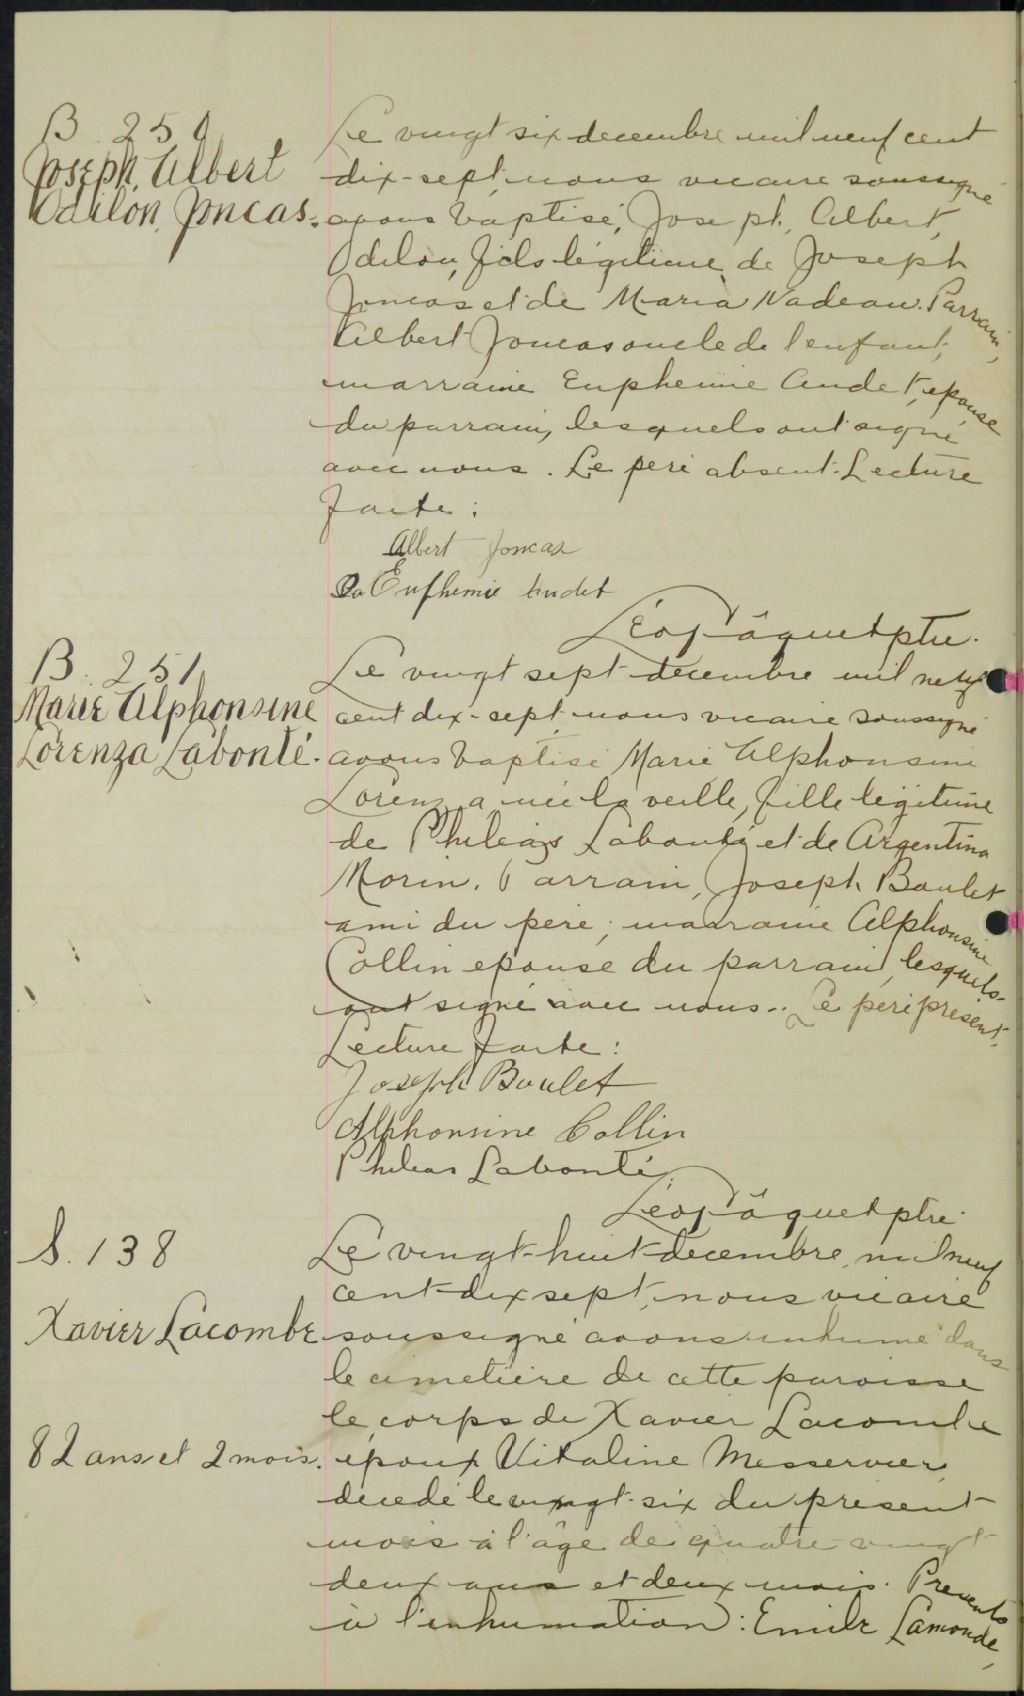 B. 250
Joseph, Albert
Odilon, Joncas.
Le vingt six decembre mil neuf cent
dix-sept, nous vicaire soussigné
avons baptisé, Joseph, Albert,
Odilon, fils légitime de Joseph
Joncas et de Maria Nadeau. Parrain,
Albert Joncas oncle de l'enfant,
marraine Euphemie Audet, epouse
du parrain, lesquels ont signé
avec nous. Le pere absent. Lecture
faite :
Albert Joncas
Euphemie Audet
Léo Pâquet ptre.
B. 251
Marie Alphonsine
Lorenza Labonté.
Le vingt sept decembre mil neuf
cent dix-sept nous vicaire soussigné
avons baptisé Marie Alphonsine
Lorenza née la veille, fille légitime
de Philéas Labonté et de Argentina
Morin. Parrain, Joseph Boulet
ami du père; marraine Alphonsine
Collin epouse du parrain, lesquels
ont signé avec nous.. Le pere présent.
Lecture faite :
Joseph Boulet
Alphonsine Collin
Phileas Labonté
Léo Pâquet ptre.
S. 138
Xavier Lacombe
82 ans et 2 mois.
Le vingt-huit decembre, mil neuf
cent-dix sept, nous vicaire
soussigné avons inhumé dans
le cimetière de cette paroisse
le corps de Xavier Lacombe
époux Vitaline Messervier,
décedé le vingt-six du présent
mois à l'âge de quatre-vingt
deux ans et deux mois. Presents
à l'inhumation : Emile Lamonde,